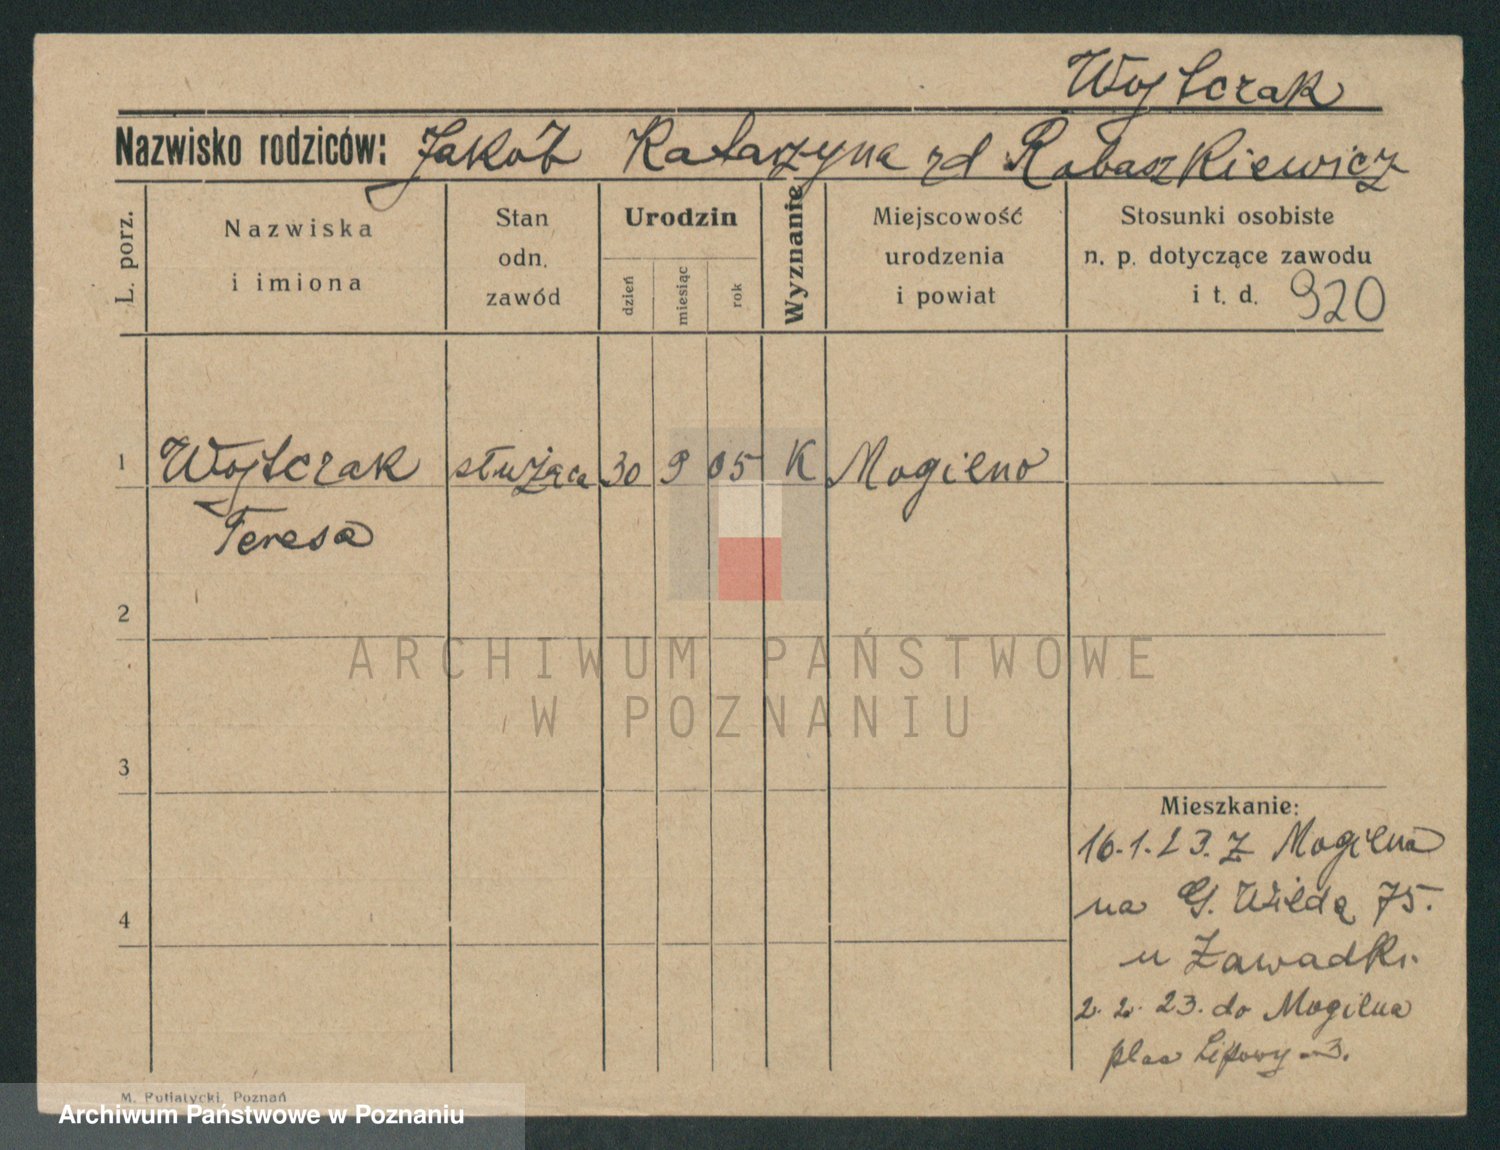 Wojtczak
Nazwisko rodziców: Jakób Katarzyna zd Rabaszkiewicz
L. porz.
Nazwiska
i imiona
Stan
odn.
zawód
Urodzin
dzień
miesiąc
rok
Wyznanie
Miejscowość
urodzenia
i powiat
Stosunki osobiste
n. p. dotyczące zawodu
i t. d. 920
1 Wojtczak służąca 30 9 05 K Mogilno
Teresa
2
ARCHIWUM PAŃSTWOWE
W POZNANIU
3
Mieszkanie:
16.1.23. Z Mogilna
na G. Wildą 75.
4
u Zawadki.
2. 2. 23. do Mogilna
plac Lipowy 3.
M. Putiatycki, Poznań
Archiwum Państwowe w Poznaniu